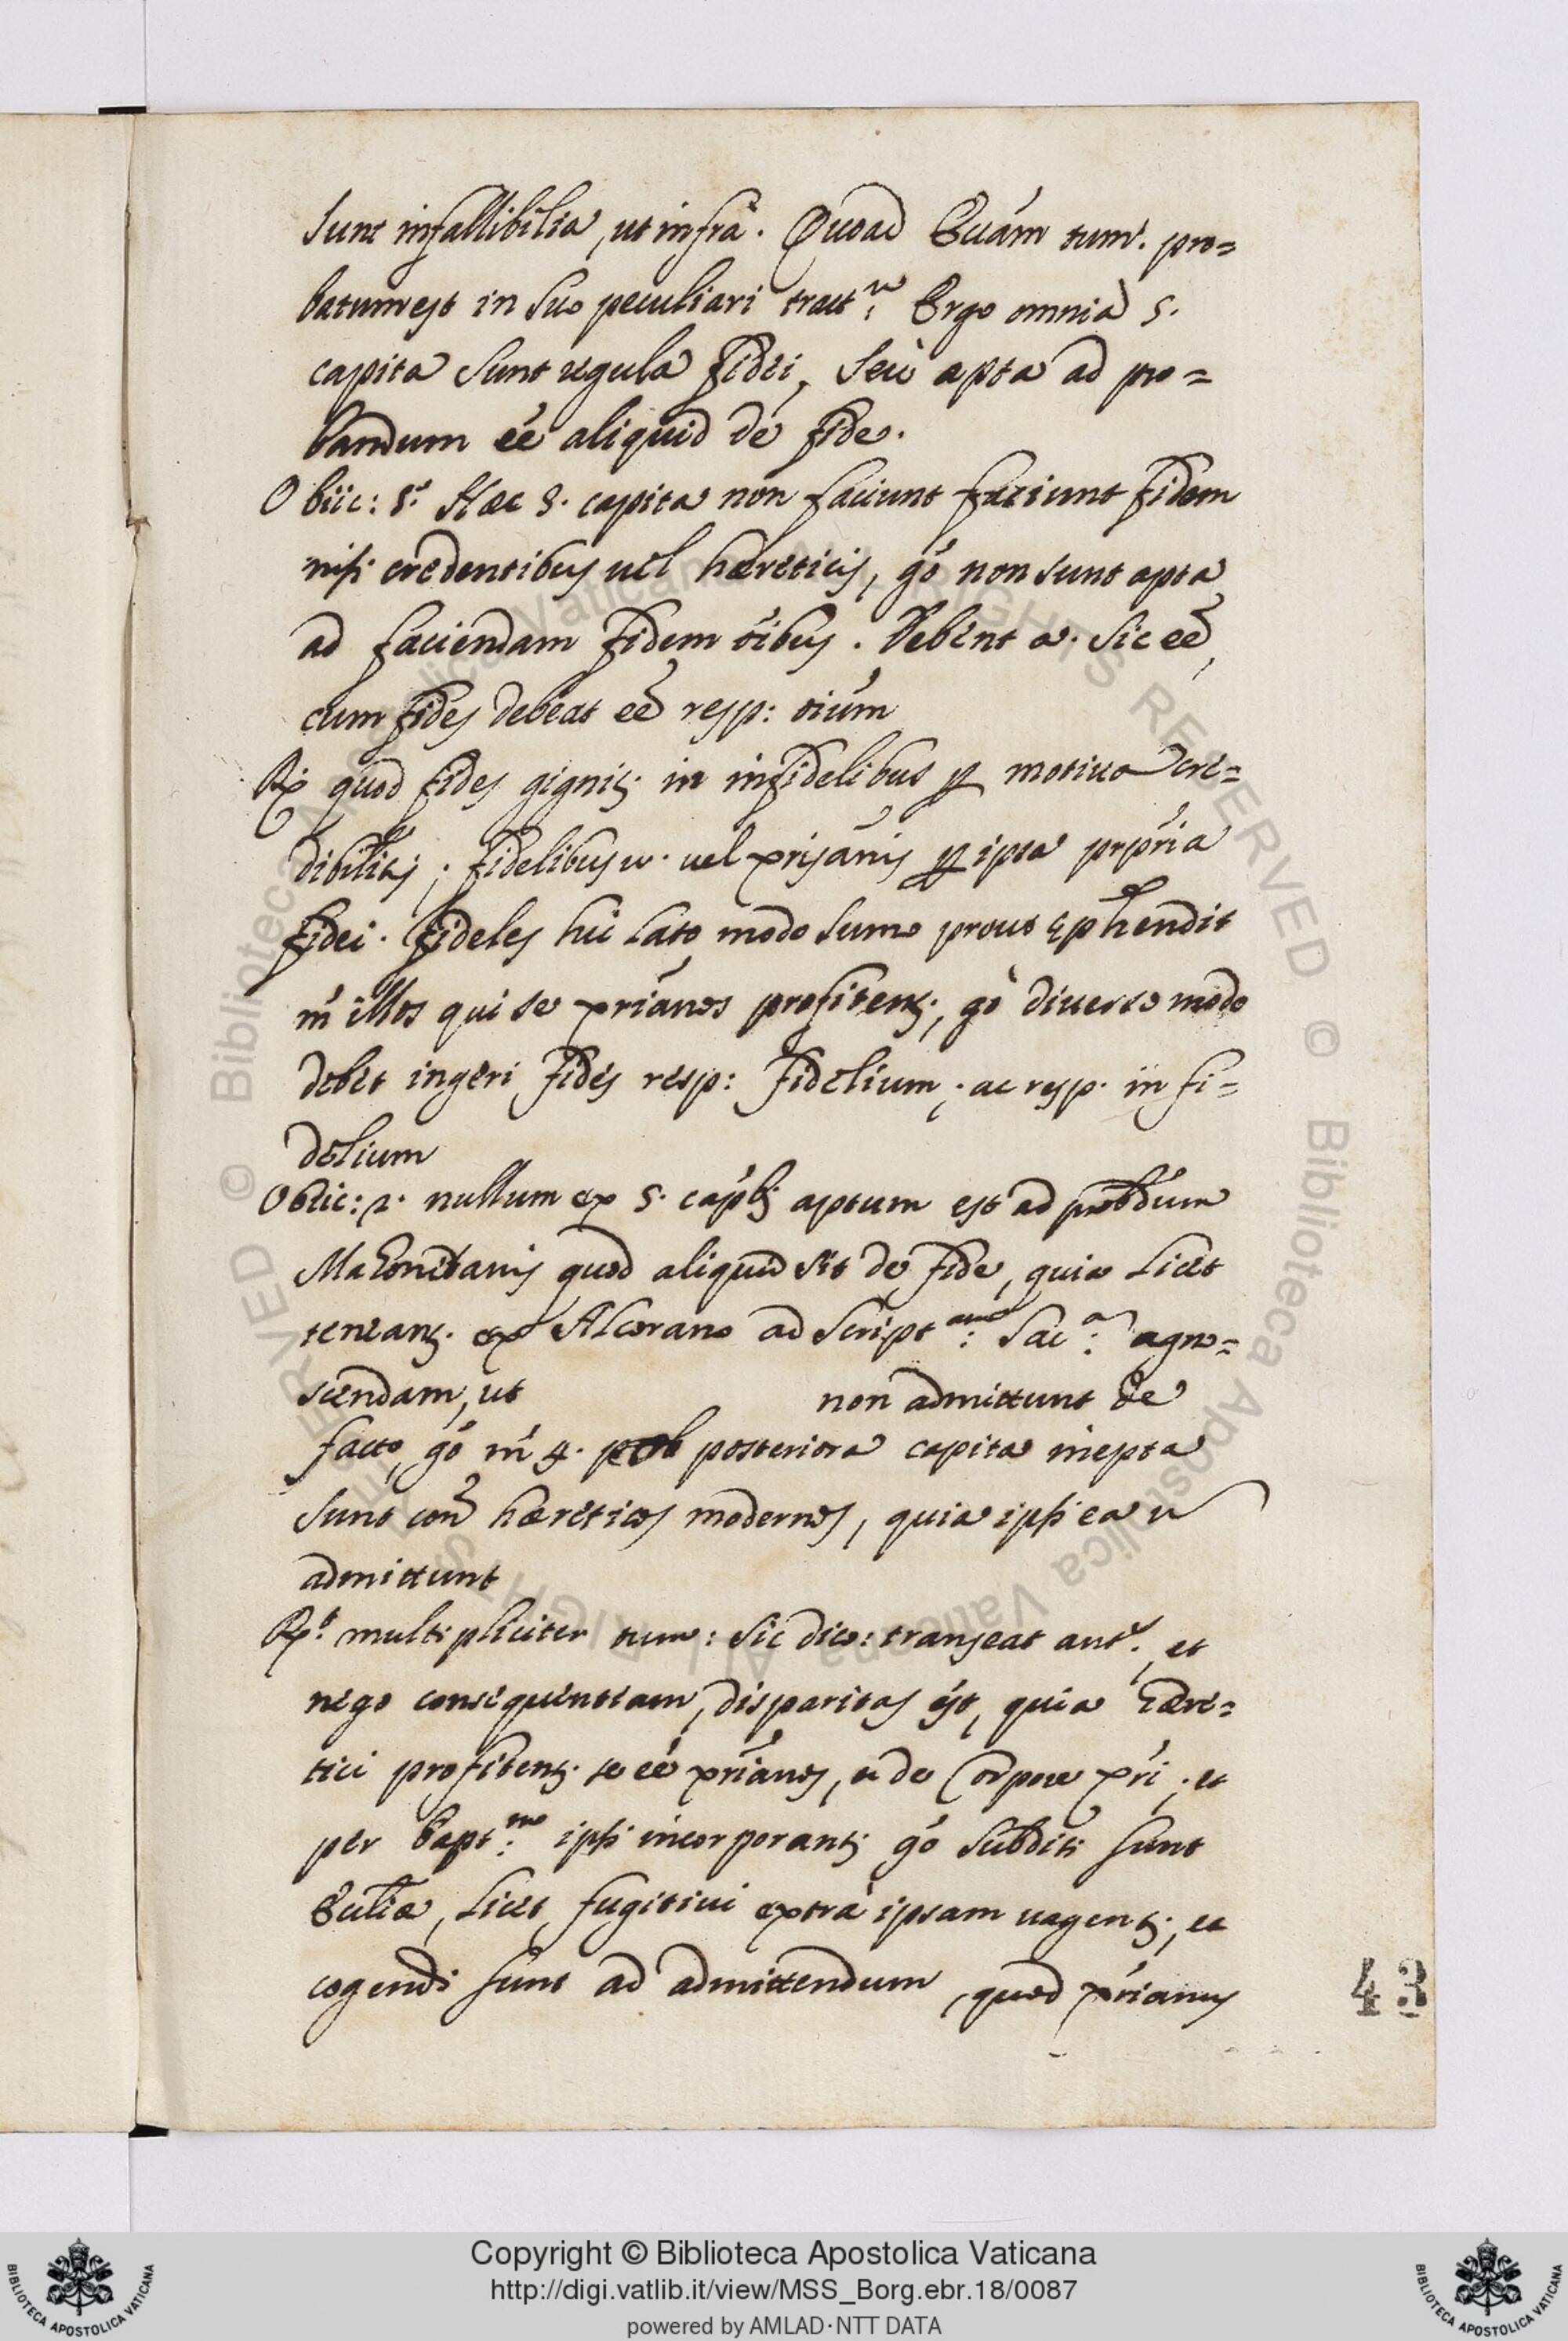 sunt infallibilia, ut infrà. Quoad Ecuám tum. pro=
batum est in suo peculiari tract.ᵘ Ergo omnià 5.
capita sunt regula fidei, seù apta ad pro=
bandum éé aliquid de fide.
Obiic: 1.º Hæc 5. capita non faciunt faciunt fidem
nisi credentibus vel hæreticis, gó non sunt apta
ad faciendam fidem oībus. Debent a. sic eē,
cum fides debeat eē resp: oiúm
Rx quod fides gignit; in infidelibus ꝑ motiua cre=
dibilitis; fidelibus u. uel xprisánis ꝑ ipsa pṙpria
fidei. fideles hic lato modo sumo prout ꝯphendit
ḿ illos qui se xpriános profitent;, gò diuerso modo
debet ingeri fides resp: fidelium; ac resp. infi=
delium
Obiic: 2. nullum ex 5. capíb; aptum est ad probdum
Mahometanis quod aliquid sit de fide, quia licet
teneant; ex Alcorano ad script.ᵃᵐ Sac.ᵃ agno=
scendam, ut non admittunt de
facto, gó ḿ 4. posteriora capita inepta
sunt con̄ hæreticos modernos, quia ipsi ea n̄
admittunt
Rx.ᵗ multipliciter tum: sic dico: transeat ant.ˢ, et
nego consequentiam, disparitas est, quia hære=
tici profitent; se eé xpriános, et de Corpore xpri; et
per bapt.ᵐᵒ ipsi incorporant; gó subditi sunt
Ecutiæ, licet fugitiui extrà ipsam uagent;, et
cogendi sunt ad admittendum, quod xprianus
43
Copyright © Biblioteca Apostolica Vaticana
http://digi.vatlib.it/view/MSS_Borg.ebr.18/0087
powered by AMLAD·NTT DATA